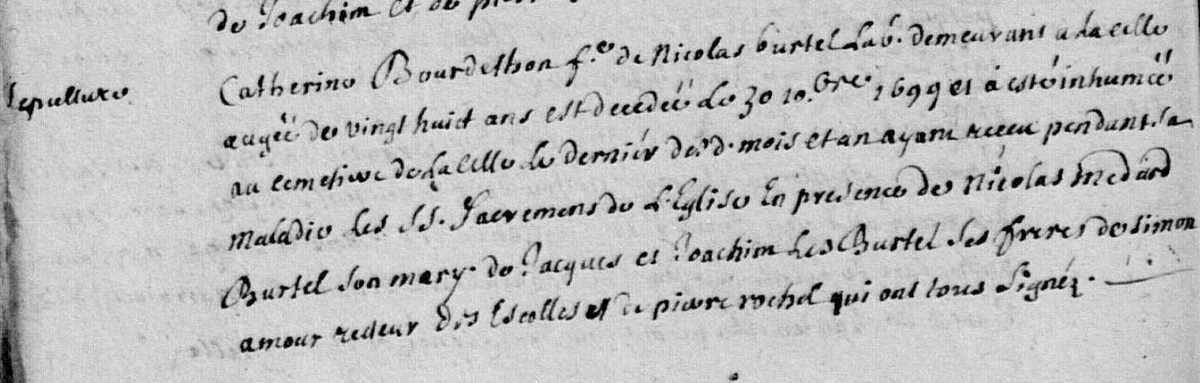 de Joachim et de pier
Sepulture
Catherine Bourdethon f.e de Nicolas burtel Lab. demeurans a la celle
augéé de vingt huict ans est decedéé le 30 10.bre 1699 et a esté inhumèé
au cemetiere de la celle le derniér desd. mois et an ayant receu pendant sa
maladie les SS. Sacremens de L'Eglise En presence de Nicolas medard
Burtel son mary. de Jacques et Joachim les Burtel ses freres de simon
amour recteur des Escolles et de pierre rochel qui ont tous signéz.